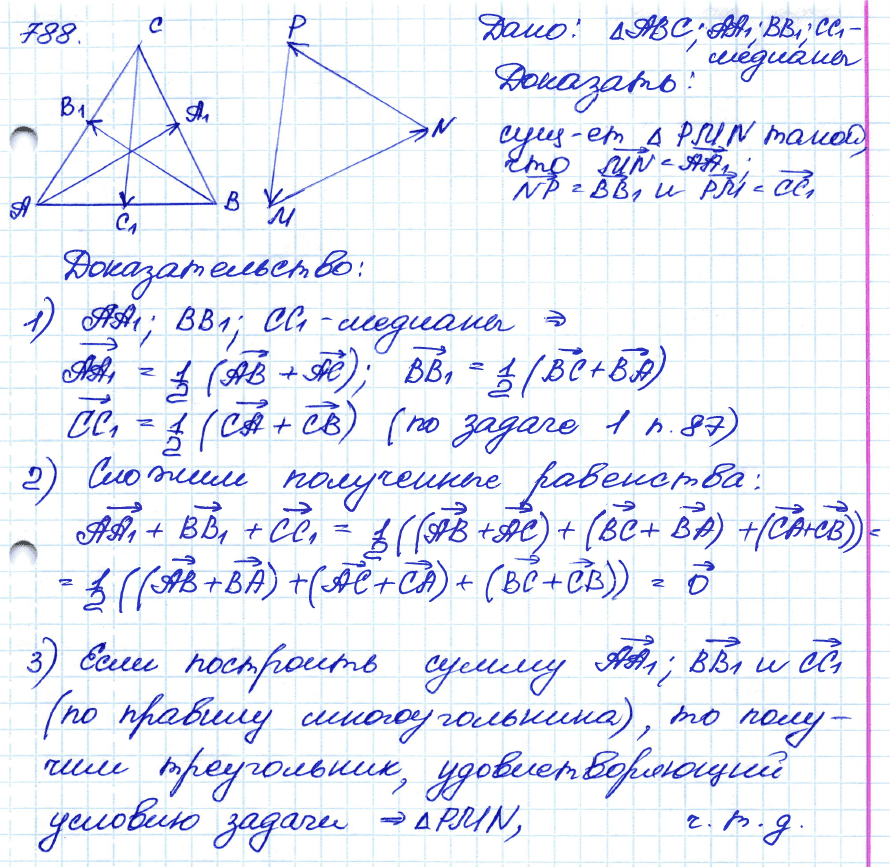 788.
C
B₁
A₁
A
C₁
B
P
N
M
Дано: △ABC; AA₁; BB₁; CC₁ -
медианы
Доказать:
сущ-ет △ PMN такой,
что MN⃗ = AA₁⃗;
NP⃗ = BB₁⃗ и PM⃗ = CC₁⃗
Доказательство:
1) AA₁; BB₁; CC₁ - медианы ⇒
AA₁⃗ = 1/2 (AB⃗ + AC⃗); BB₁⃗ = 1/2 (BC⃗ + BA⃗)
CC₁⃗ = 1/2 (CA⃗ + CB⃗) (по задаче 1 п. 87)
2) Сложим полученные равенства:
AA₁⃗ + BB₁⃗ + CC₁⃗ = 1/2 ((AB⃗ + AC⃗) + (BC⃗ + BA⃗) + (CA⃗ + CB⃗)) =
= 1/2 ((AB⃗ + BA⃗) + (AC⃗ + CA⃗) + (BC⃗ + CB⃗)) = 0⃗
3) Если построить сумму AA₁⃗; BB₁⃗ и CC₁⃗
(по правилу многоугольника), то полу-
чим треугольник, удовлетворяющий
условию задачи ⇒ △PMN, ч. т. д.